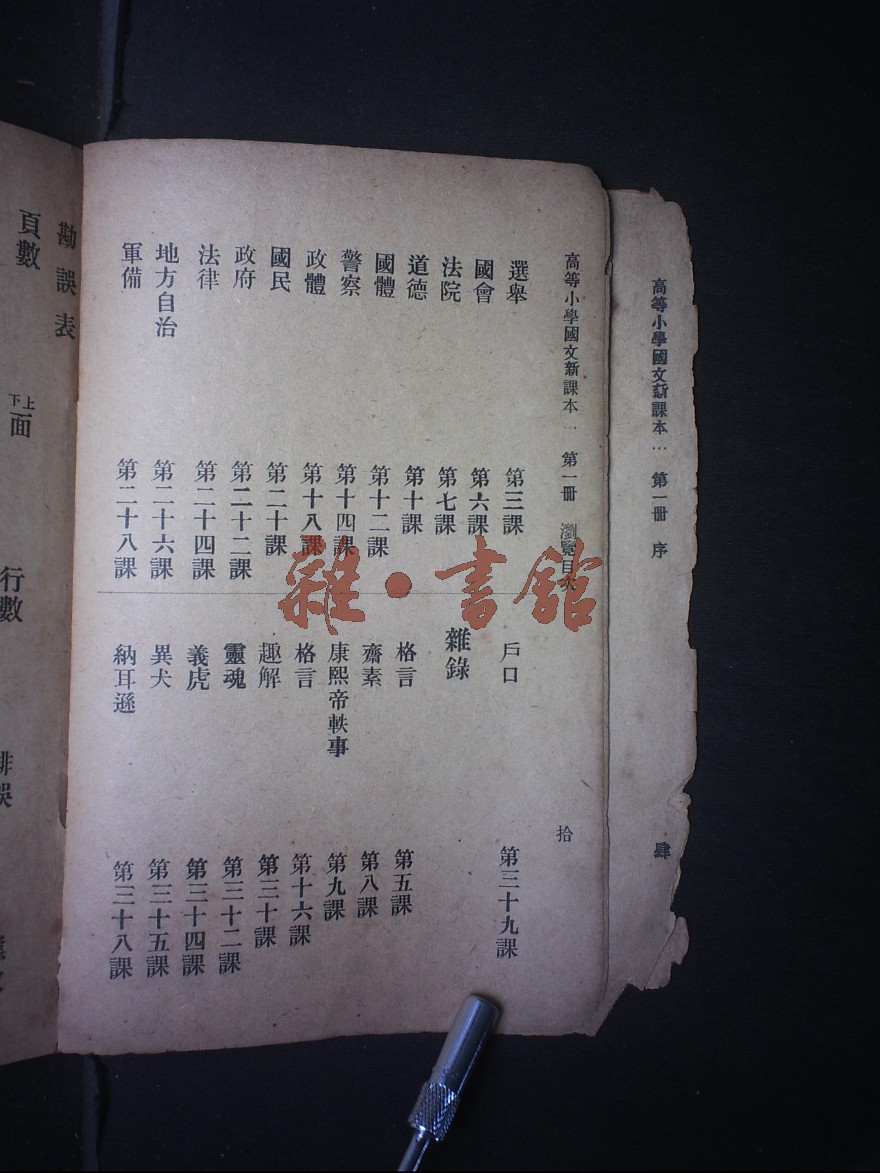 高等小學國文新課本 第一冊 序
肆
高等小學國文新課本 第一冊 瀏覽目次
拾
選舉 第三課
國會 第六課
法院 第七課
道德 第十課
國體 第十二課
警察 第十四課
政體 第十八課
國民 第二十課
政府 第二十二課
法律 第二十四課
地方自治 第二十六課
軍備 第二十八課
戶口 第三十九課
雜錄
格言 第五課
齋素 第八課
康熙帝軼事 第九課
格言 第十六課
趣解 第三十課
靈魂 第三十二課
義虎 第三十四課
異犬 第三十五課
納耳遜 第三十八課
勘誤表
頁數
上下面
行數
雜·書館